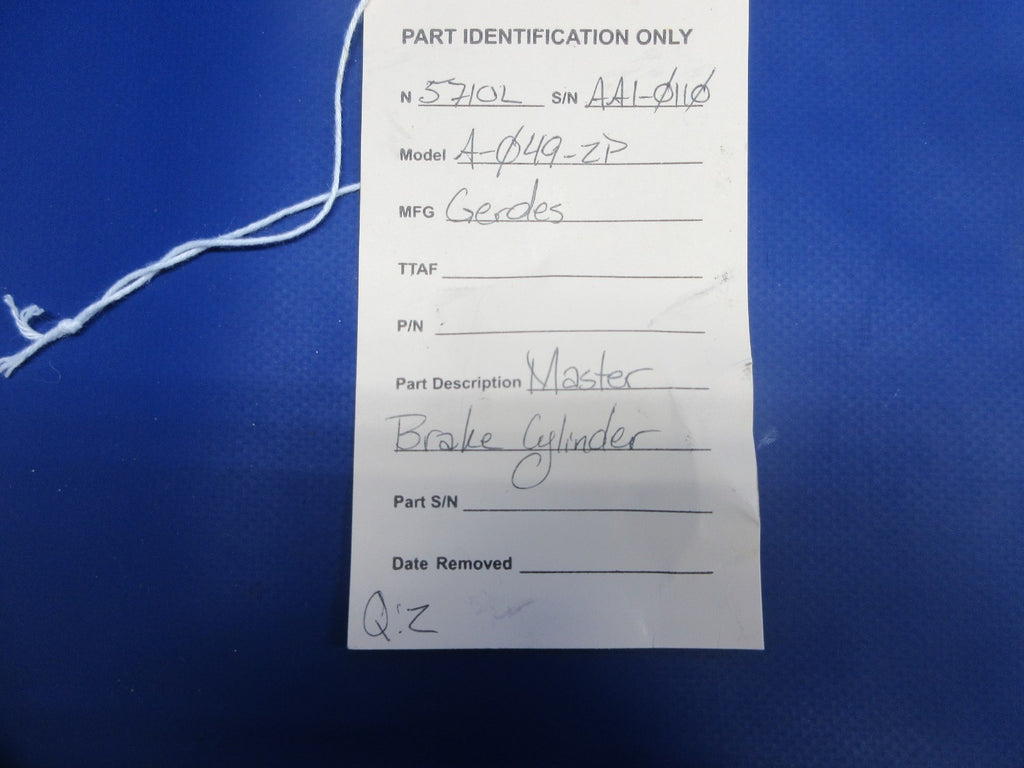 PART IDENTIFICATION ONLY
N 5710L S/N AA1-Ø11Ø
Model A-Ø49-2P
MFG Gerdes
TTAF
P/N
Part Description Master
Brake Cylinder
Part S/N
Date Removed
Q:2